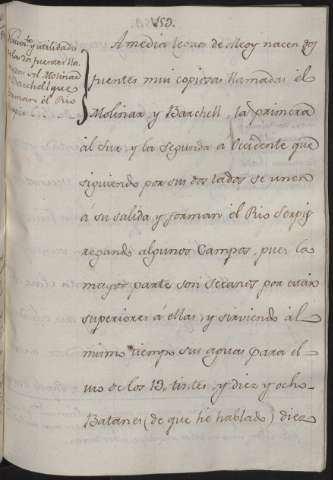 153.
y utilidad
de las dos fuentes lla-
madas del Molinar
y Barchell que
forman el Rio
A media legua de Alcoy nacen dos
fuentes mui copiosas llamadas el
Molinar y Barchell, la primera
al Sur, y la segunda a Occidente que
siguiendo por sus dos lados se unen
a su salida y forman el Rio Serpis
regando algunos Campos, pues la
mayor parte son Secanos por estár
superiores á ellas, y sirviendo al
mismo tiempo sus aguas para el
uso de los 13, tintes, y diez y ocho
Batanes (de que hé hablado) diez